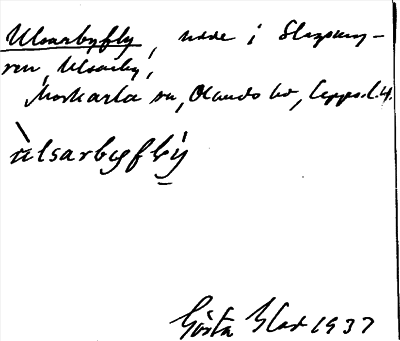 Ulsarbyfly, udde i Slagsmy-
ren, Ulsarby,
Morkarla sn, Olands hd, Upps. l.
ùlsarbyflỳ
Gösta Blad 1937